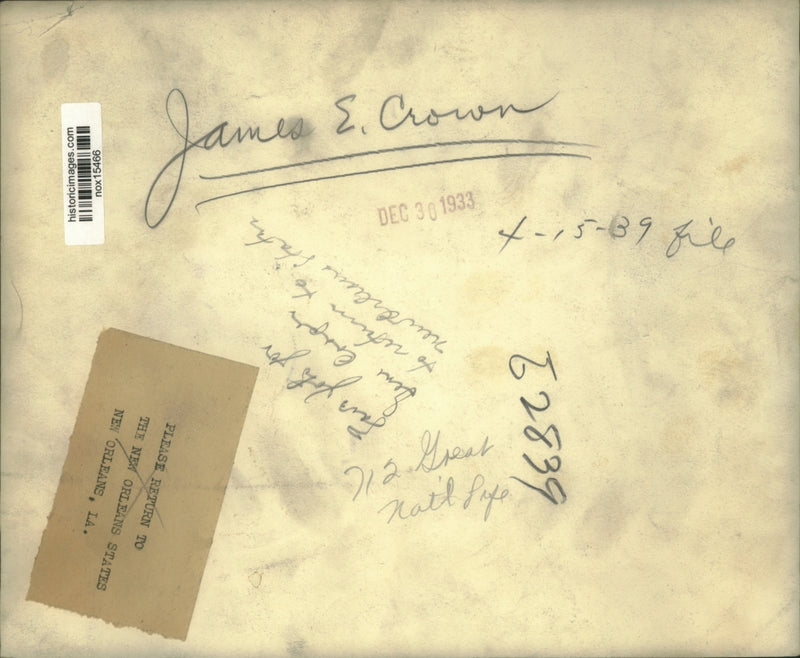 historicimages.com
nox15466
James E. Crown
DEC 30 1933
4-15-39 file
for
to return to
New Orleans States
E2839
712 Great
Nat'l Life
PLEASE RETURN TO
THE NEW ORLEANS STATES
NEW ORLEANS, LA.